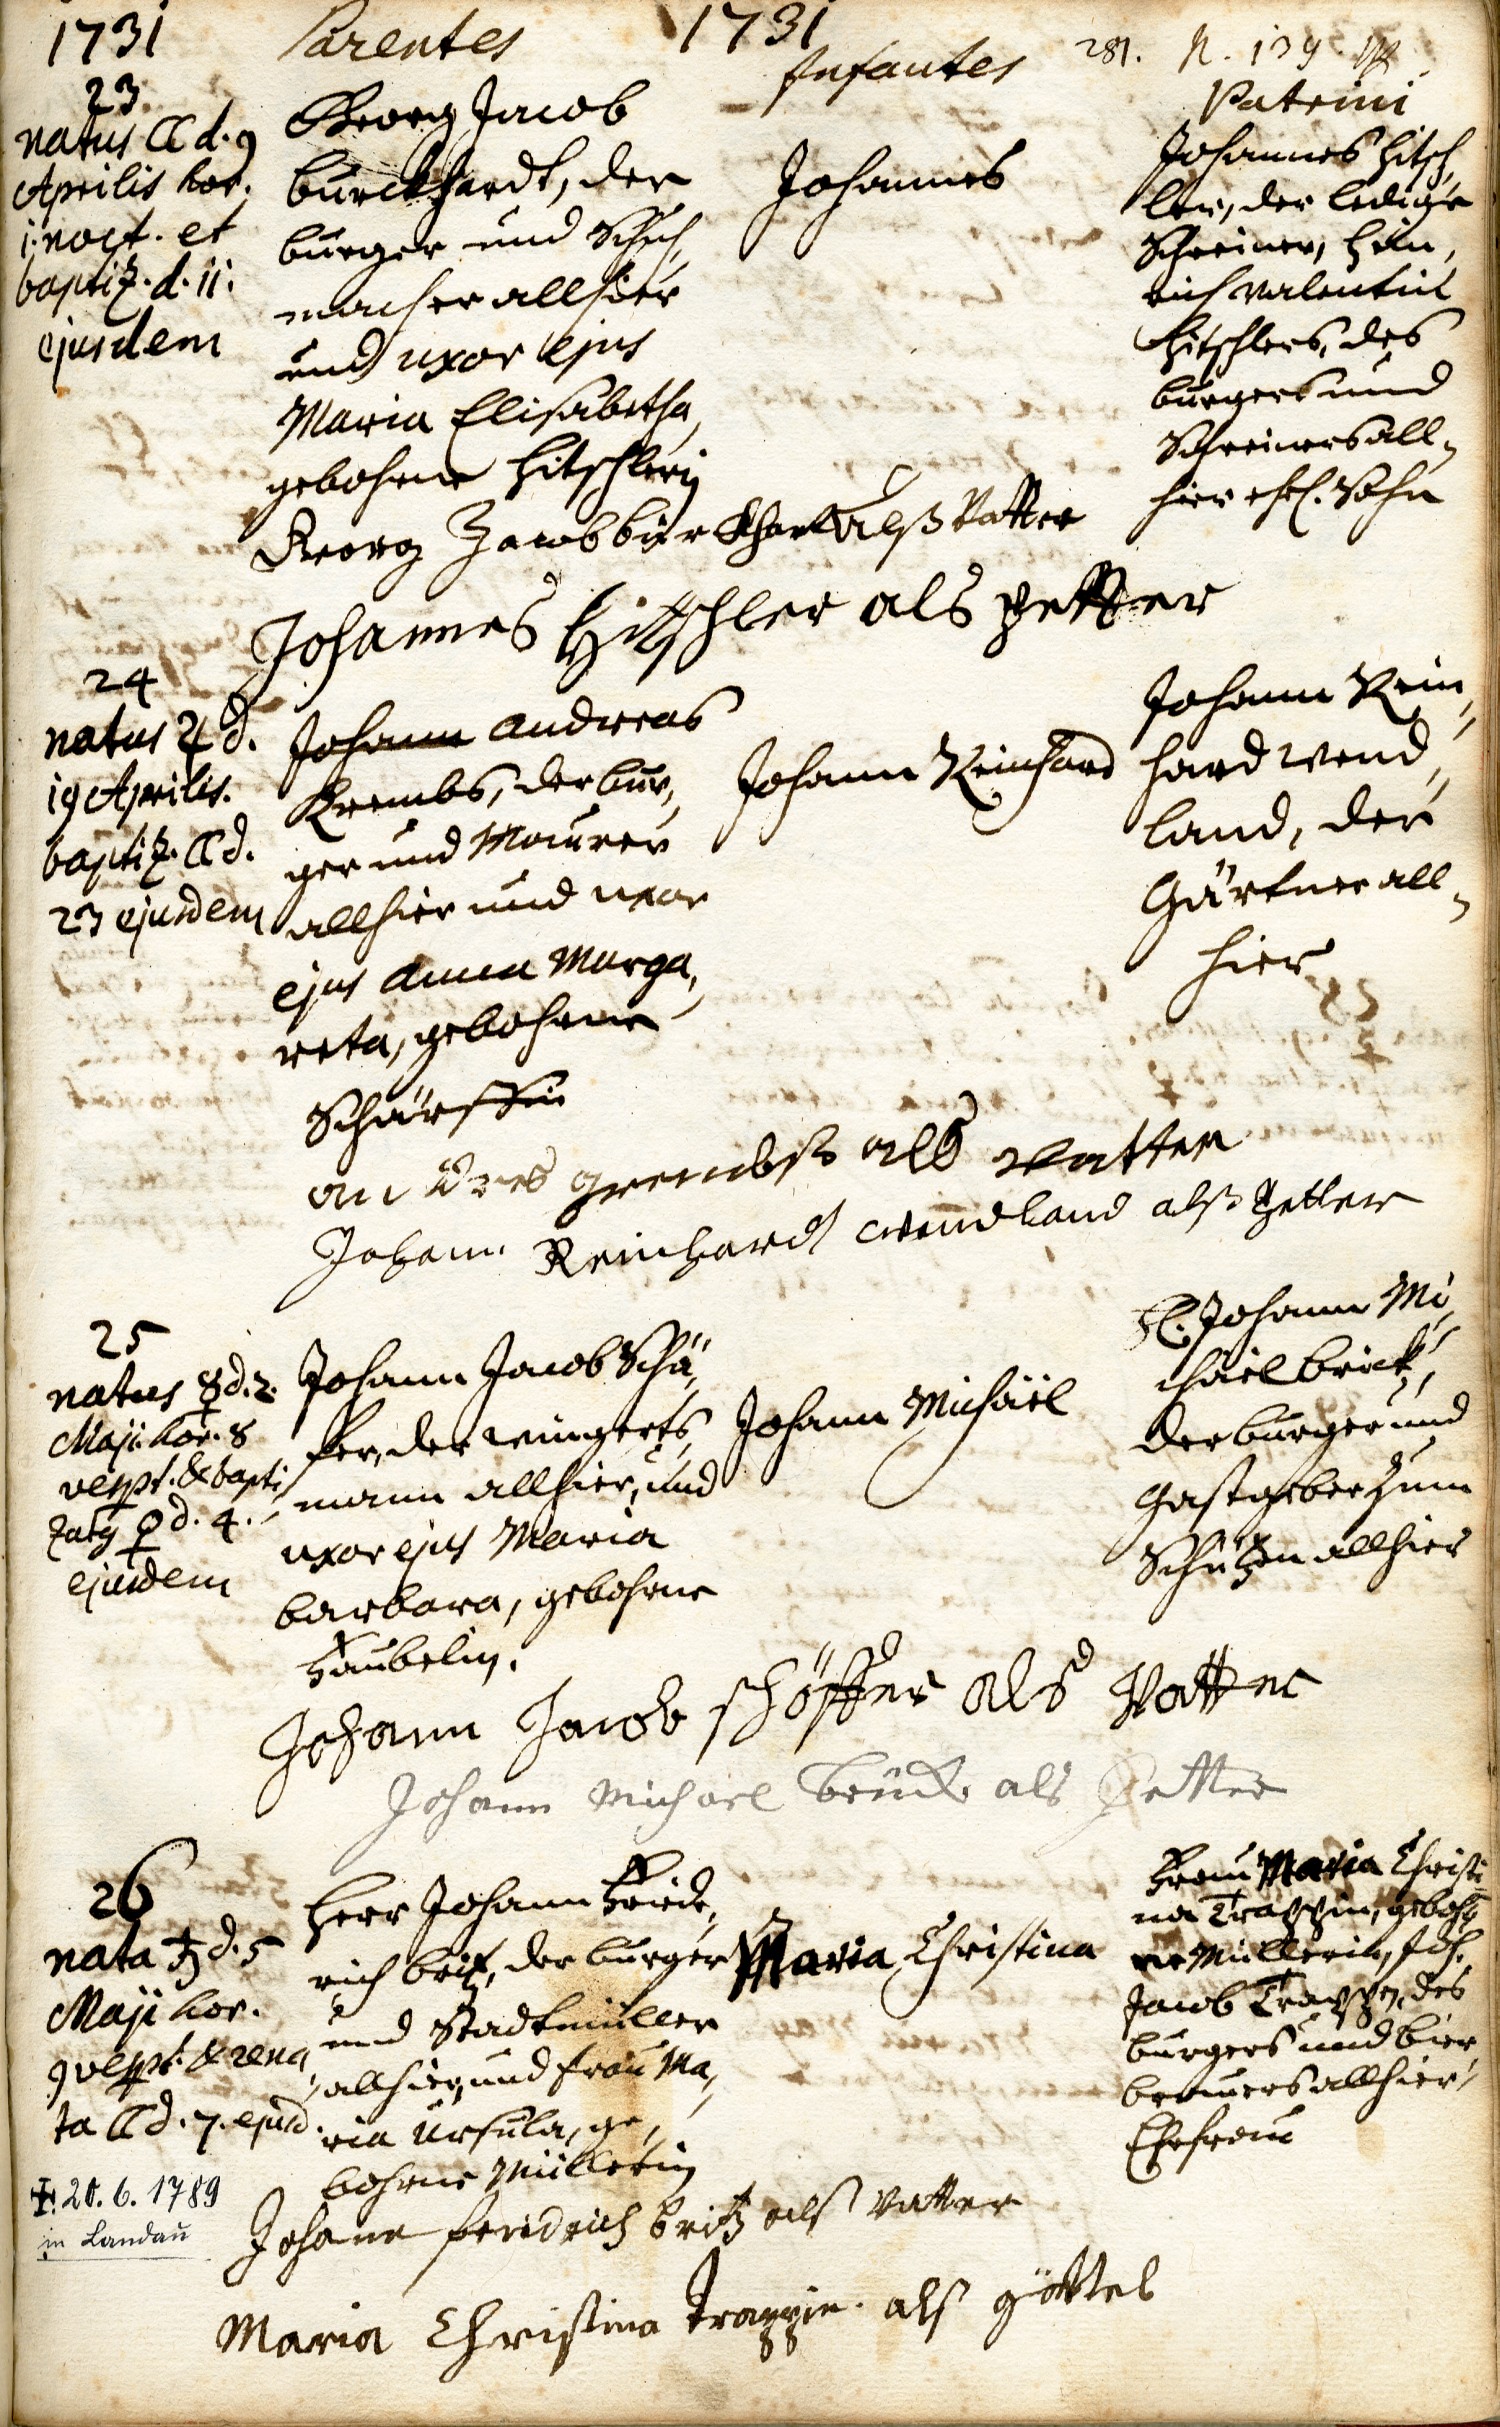 1731
Parentes
1731
Infantes
281. N. 139
Patrini
23.
natus ☾ d. 9
Aprilis hor.
1. noct. et
baptiz. d. 11.
ejusdem
Georg Jacob
burckhardt, der
burger und Schuh,
macher allhier
und uxor ejus
Maria Elisabetha,
gebohrne Hitschlerin
Johannes
Johannes Hitsch,
ler, der ledige
Schreiner, Hein,
rich Valentin
Hitschlers, des
burgers und
Schreiners all,
hier ehel. Sohn
Georg Jacob burkhart alß Vatter
Johannes Hitschler als petter
24
natus ♃ d.
19 Aprilis.
baptiz. ☾ d.
23 ejusdem
Johann Andreas
Krembs, der bur,
ger und Maurer
allhier und uxor
ejus Anna Marga,
reta, gebohrne
Schärffin
Johann Reinhard
Johann Rein,
hard Wend,
land, der
Gärtner all,
hier
andres grembß als vatter
Johann Reinhardt Wendland alß petter
25
natus ☿ d. 2.
Maji hor. 8
vespt. & bapti
zatg ♀ d. 4.
ejusdem
Johann Jacob Schä,
fer, der wingerts,
mann allhier, und
uxor ejus Maria
barbara, gebohrne
Häubelin.
Johann Michäel
H. Johann Mi,
chäel brück,
der burger und
Gastgeber zum
Schützen allhier
Johann Jacob schöffer als Vatter
Johann Michael brück als petter
26
nata ♄ d. 5
Maji hor.
9 vespt. & rena,
ta ☾ d. 7. ejusd.
✝ 20. 6. 1789
in Landau
Herr Johann Fride,
rich britz, der burger
und Stadtmüller
allhier, und frau Ma,
ria Ursula, ge,
bohrne Müllerin
Maria Christina
Frau Maria Christi,
na Trappin, geboh,
rne Müllerin, Joh.
Jacob Trappen, des
burgers und bier
brauers allhier,
Ehefrau
Johann fridrich britz alß vatter
Maria Christina Trappin. alß göttel